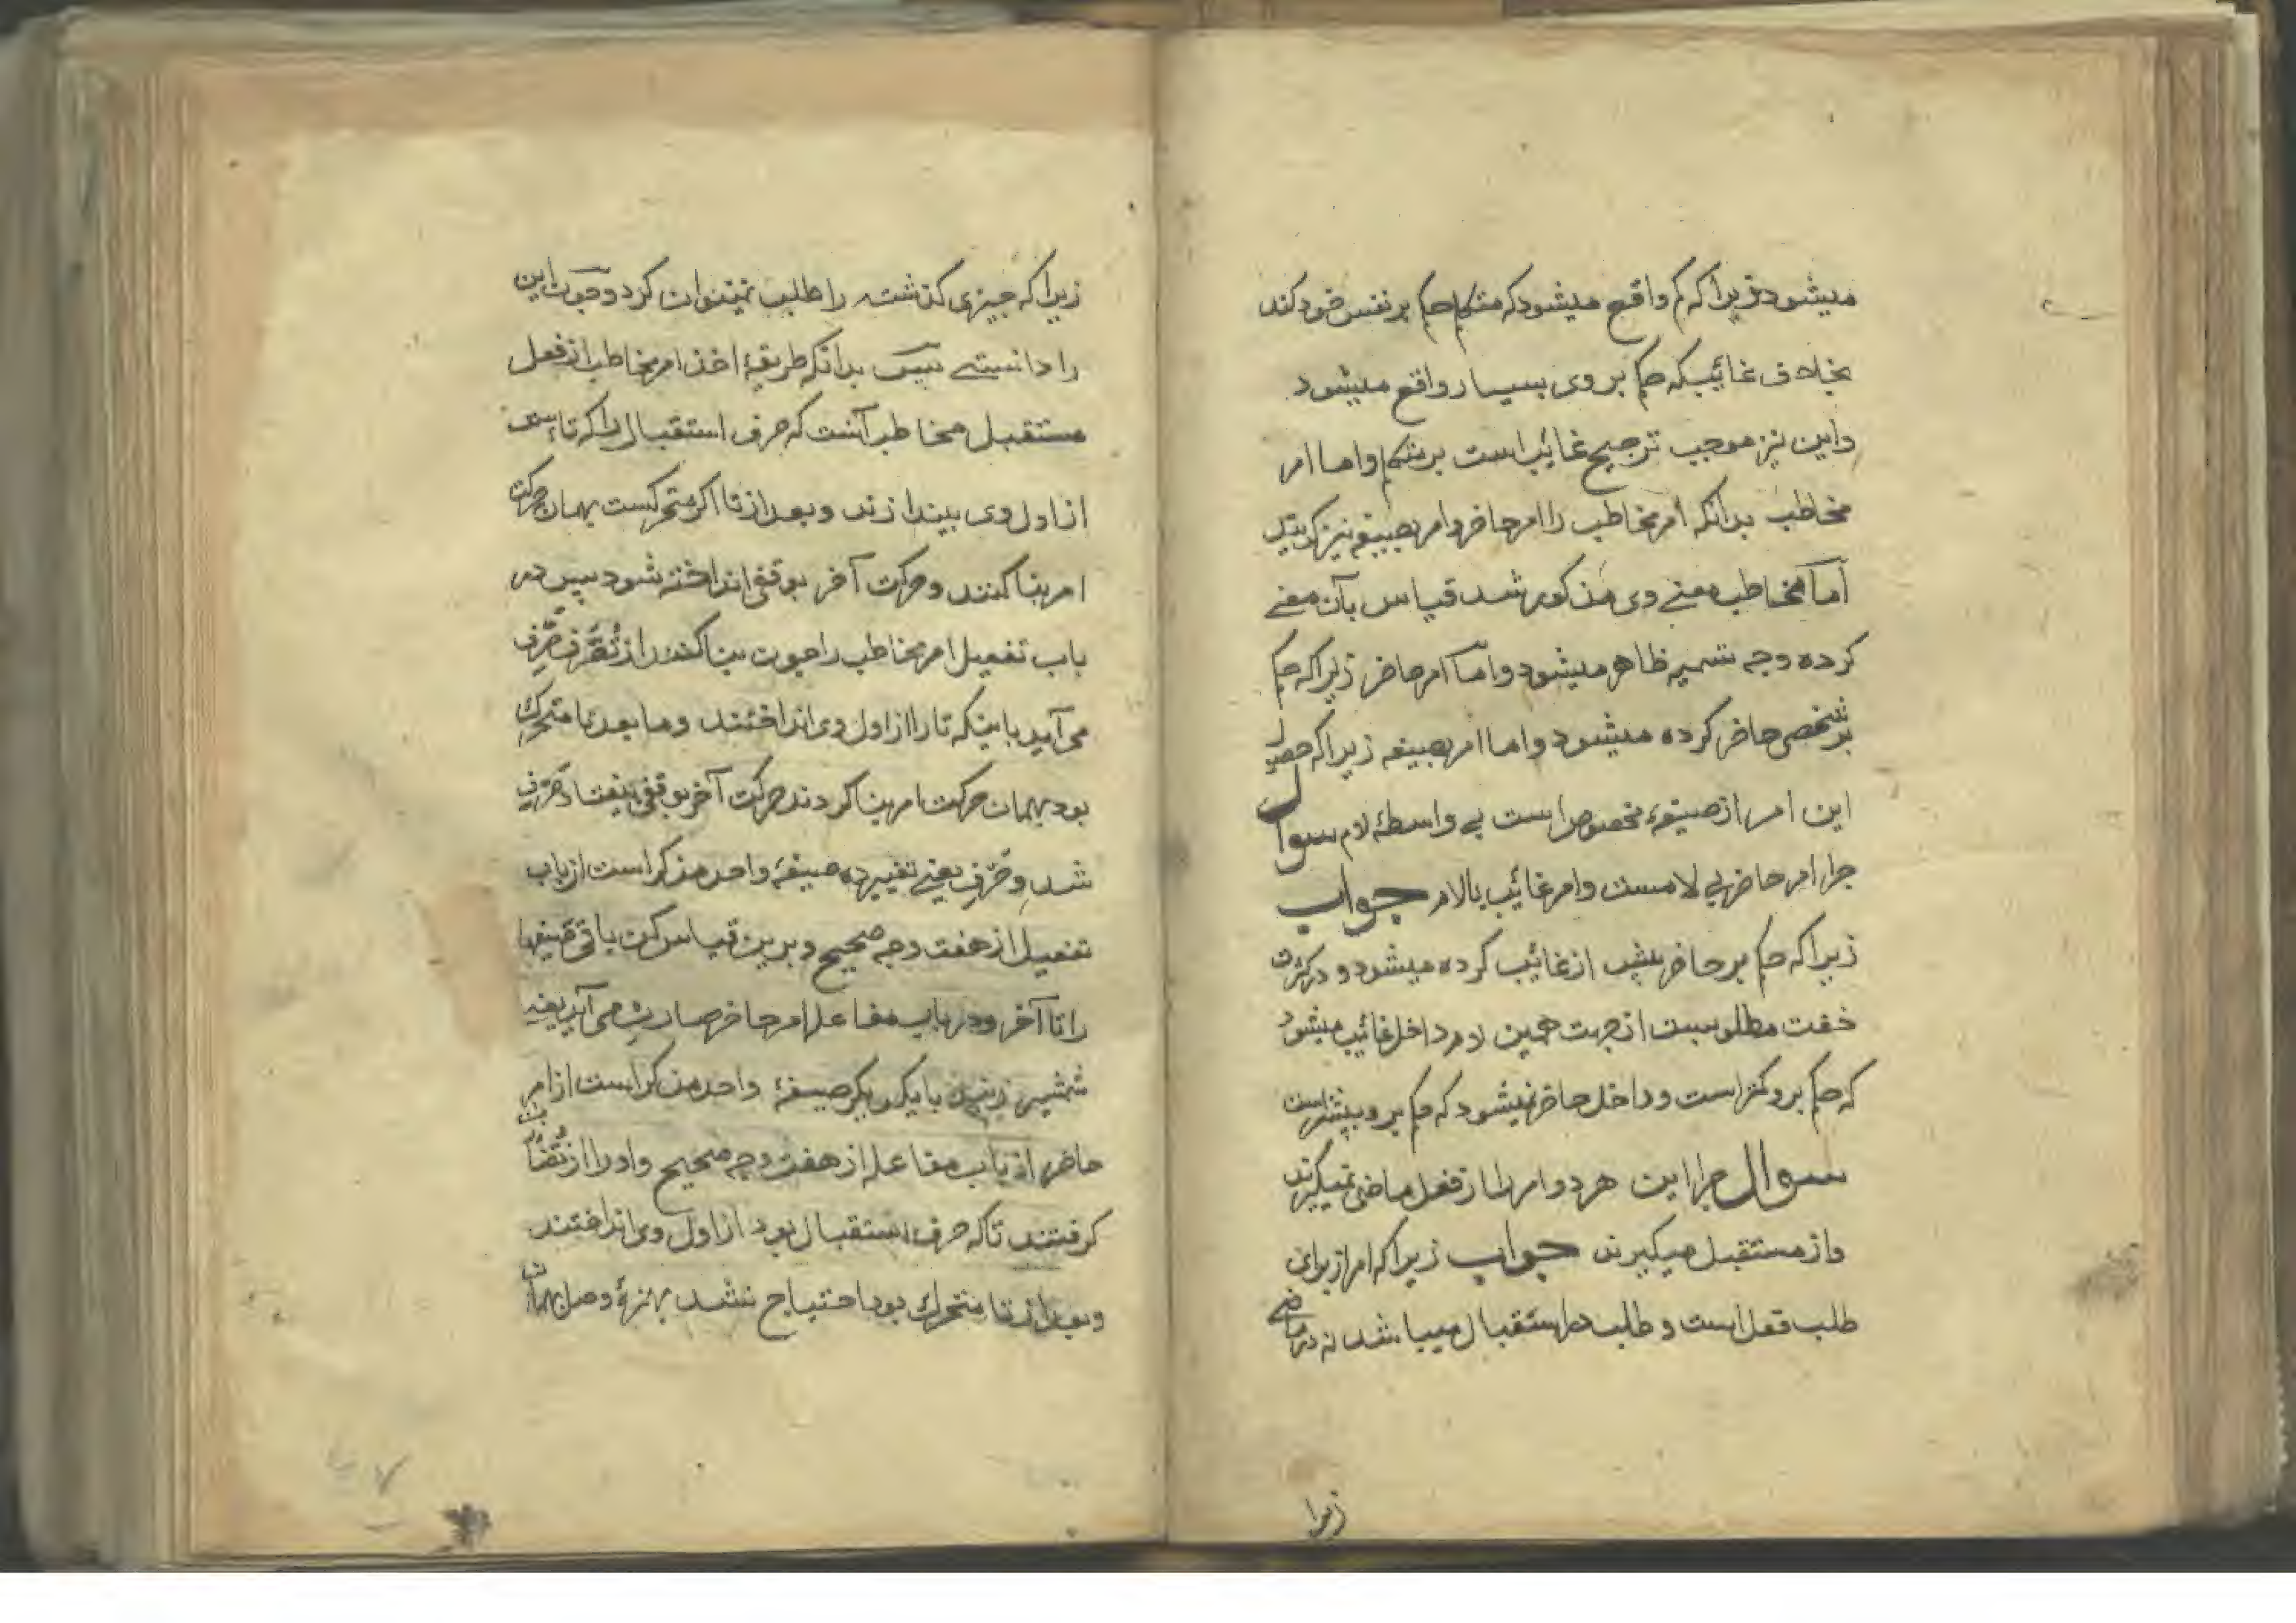 میشود زیرا که کم واقع میشود که متکلم حکم بر نفس خود کند
بخلاف غائب که حکم بر وی بسیار واقع میشود
و این نیز موجب ترجیح غائب است بر متکلم و اما امر
مخاطب بدانکه امر مخاطب را امر حاضر و امر بصیغه نیز کویند
اما مخاطب معنے وی مذکور شد قیاس بآن معنے
کرده وجه تسمیه ظاهر میشود و اما امر حاضر زیرا که حکم
بر شخص حاضر کرده میشود و اما امر بصیغه زیرا که حصول
این امر از صیغهٔ مخصوص است بے واسطهٔ لام سوال
چرا امر حاضر بی لامست و امر غائب بالام جواب
زیرا که حکم بر حاضر بیشتر از غائب کرده میشود و در کثرت
خفت مطلوبست از جهت همین لام داخل غائب میشود
که حکم برو کمتر است و داخل حاضر نمیشود که حکم برو بیشتر است
سوال چرا این هر دو امر را از فعل ماضی نمیکیرند
و از مستقبل میکیرند جواب زیرا که امر از برای
طلب فعل است و طلب در استقبال میباشد نه در ماضے
زیرا
زیرا که چیزی کذشته را طلب نمیتوان کرد و چون این
را دانستے پس بدانکه طریقهٔ اخذ امر مخاطب از فعل
مستقبل مخاطب آنست که حرف استقبال را که تاء است
از اول وی بیندازند و بعد از تا اکر متحرکست بهمان حرکت
امر بنا کنند و حرکت آخر بوقفی انداخته شود پس در
باب تفعیل امر مخاطب را چون بنا کنند از تُصَرِّفُ صَرِّف
می آید باینکه تا را از اول وی انداختند و ما بعد تا متحرک
بود بهمان حرکت امر بنا کردند حرکت آخر بوقفی بیفتاد صَرِّف
شد و صَرِّف یعنے تغییر ده صیغهٔ واحد مذکر است از باب
تفعیل از هفت وجه صحیح و برین قیاس کن باقی صیغها
را تا آخر و در باب مفاعله امر حاضر ضارِب می آید یعنے
شمشیر زنی با یکدیکر صیغهٔ واحد مذکر است از امر
حاضر از باب مفاعله از هفت وجه صحیح و او را از تُضارِبُ
کرفتند تا که حرف استقبال بود از اول وی انداختند
و بعد از تا متحرک بود احتیاج نشد بهمزهٔ وصل بهمان